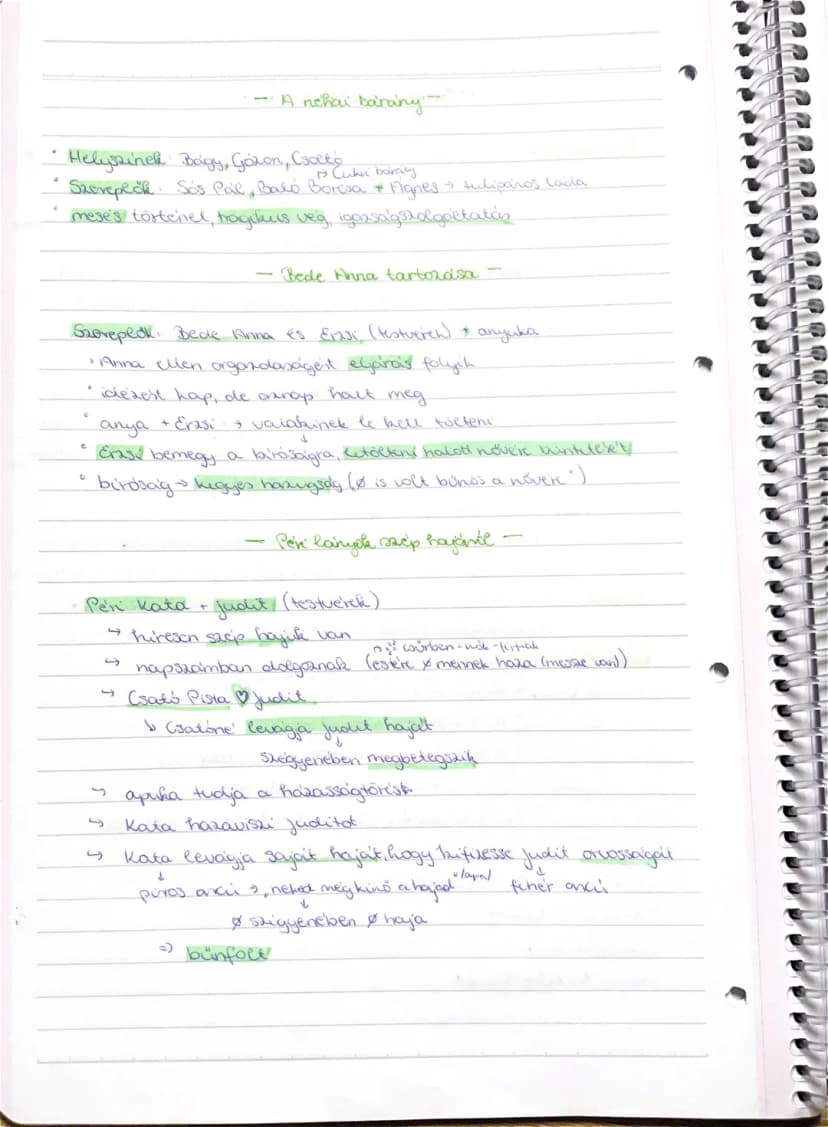 - A néhai bárány -
• Helyszínek: Bágy, Gózon, Csoltó
↳ Cukri bárány
• Szereplők: Sós Pál, Baló Borcsa + Ágnes → tulipános láda
• mesés történet, tragikus vég, igazságszolgáltatás
- Bede Anna tartozása -
Szereplők: Bede Anna és Erzsi (testvérek) + anyuka
• Anna ellen orgazdaságért eljárás folyik
• idézést kap, de aznap halt meg
• anya + Erzsi → valakinek le kell tölteni
↓
• Erzsi bemegy a bíróságra, letölteni halott nővére büntetését
• bíróság → kegyes hazugság (Ø is volt bűnös a nővére")
- Péri lányok szép hajáról -
Péri Kata + Judit (testvérek)
↳ híresen szép hajuk van
csűrben - nők - férfiak
↳ napszámban dolgoznak (estére Ø mennek haza (messze van))
↳ Csató Pista ♡ Judit
↳ Csatóné levágja Judit haját
↓
szégyenében megbetegszik
↳ apuka tudja a házasságtörést
↳ Kata hazaviszi Juditot
↳ Kata levágja saját haját, hogy kifizesse Judit orvosságát
↓ ↓
piros arcú → „neked még kinő a hajad" /apa/ fehér arcú
↓
Ø szégyenében Ø haja
⇒ bűnfolt